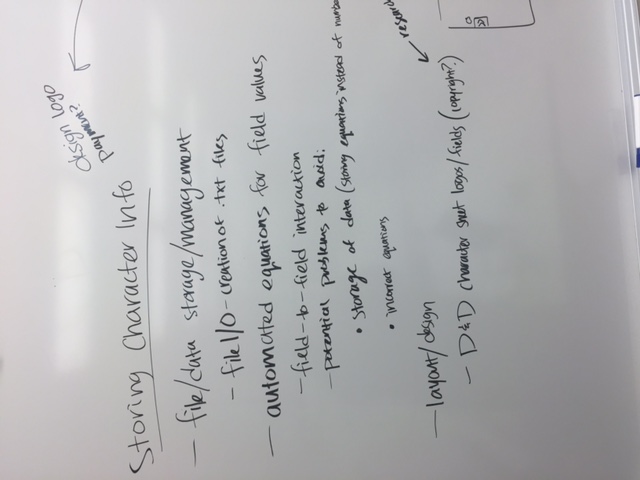 design logo
payment?
Storing Character Info
— file/data storage/management
- file I/O - creation of .txt files
— automated equations for field values
- field-to-field interaction
- potential problems to avoid:
• storage of data (storing equations instead of numbe
• incorrect equations
researc
— layout/design
- D&D character sheet logos/fields (copyright?)